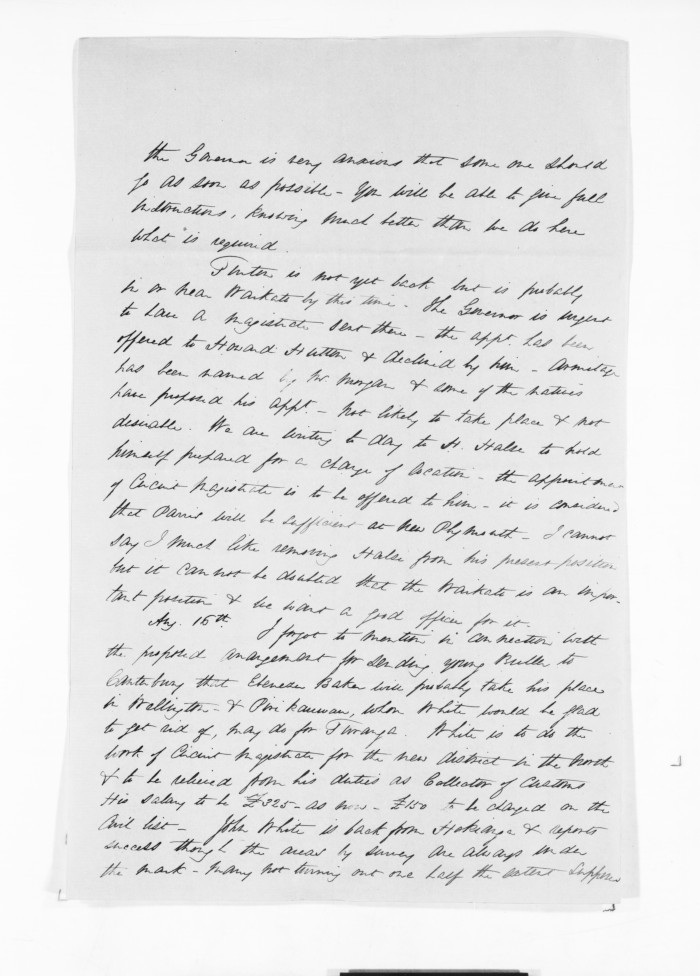 the Governor is very anxious that some one should
go as soon as possible - You will be able to give full
instructions, knowing much better than we do here
what is required.
Fenton is not yet back but is probably
in or near Waikato by this time - The Governor is urgent
to have a magistrate sent there - the appt. has been
offered to Howard Hutton & declined by him - Armitage
has been named by Mr Morgan & some of the natives
have proposed his appt. - not likely to take place & not
desirable. We are writing to day to H. Halse to hold
himself prepared for a change of location - the appointment
of Circuit Magistrate is to be offered to him - it is considered
that Parris will be sufficient at New Plymouth - I cannot
say I much like removing Halse from his present position
but it can not be doubted that the Waikato is an impor-
tant position & we want a good officer for it.
Aug. 16th. I forgot to mention in connection with
the proposed arrangement for sending young Buller to
Canterbury that Ebenezer Baker will probably take his place
in Wellington - & Piri kawau, whom White would be glad
to get rid of, may do for Turanga. White is to do the
work of Circuit Magistrate for the new district in the North
& to be relieved from his duties as Collector of Customs
His salary to be £325 - as now - £150 to be charged on the
Civil list - John White is back from Hokianga & reports
success though the areas by survey are always under
the mark - many not turning out one half the extent suppose